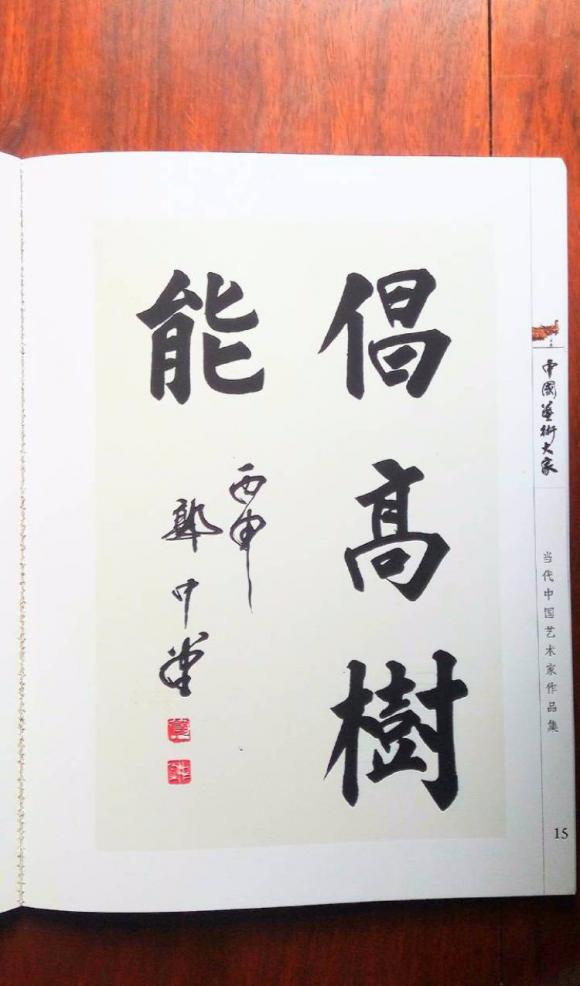 倡高樹
能
丙申
郭中堂
中國藝術大家
当代中国艺术家作品集
15